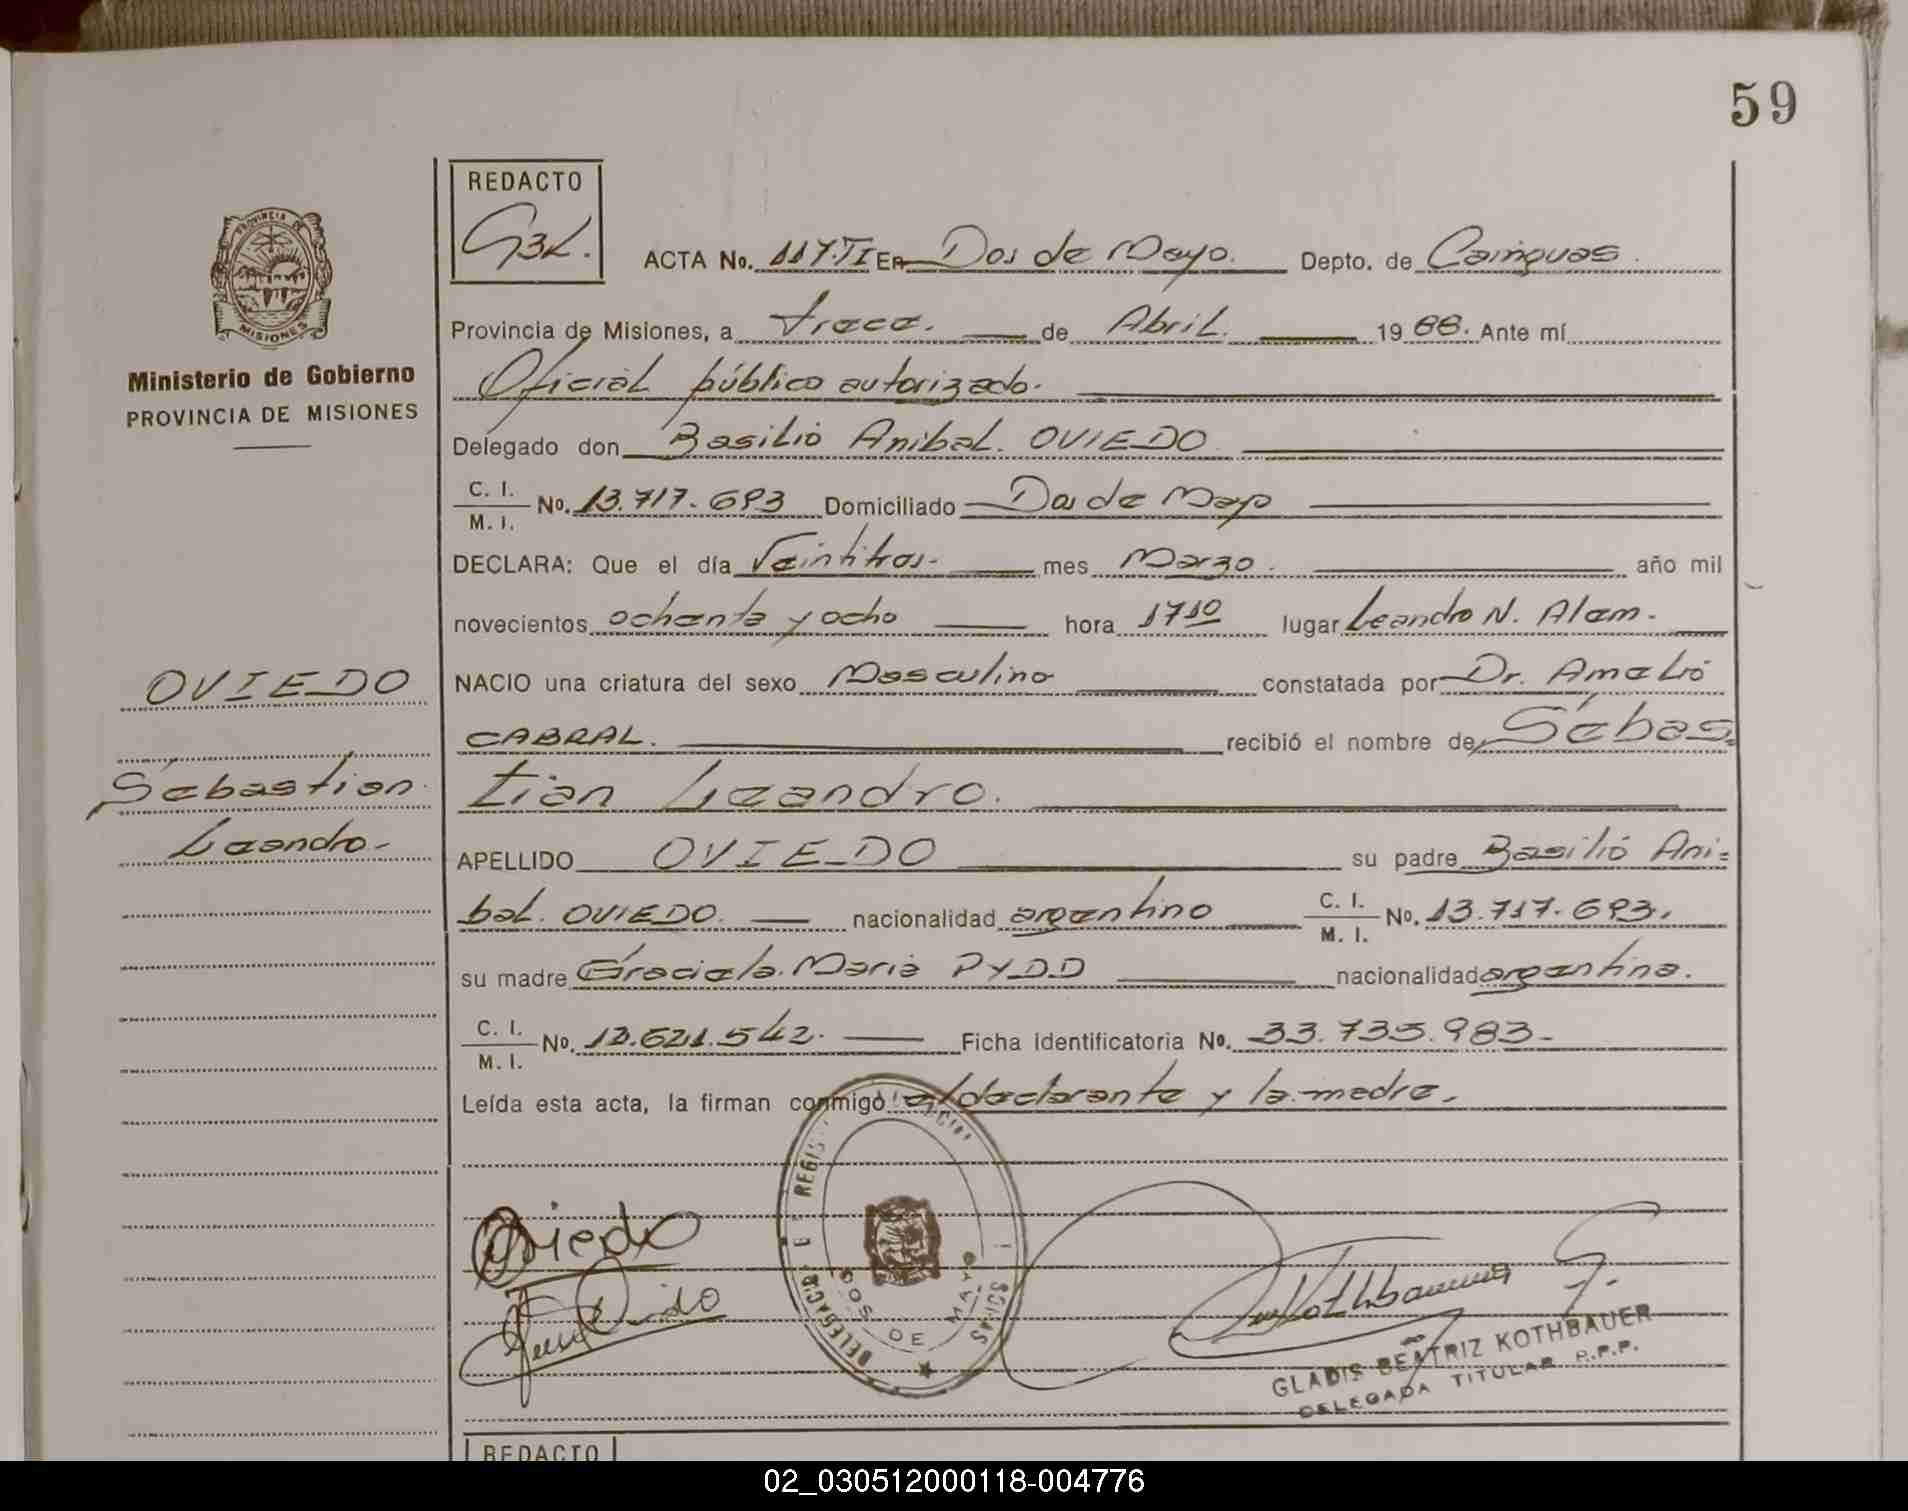 59
REDACTO
G3K.
ACTA No. 117.TI En Dos de Mayo. Depto. de Cainguas.
Provincia de Misiones, a trece. de Abril. 1988. Ante mí
Oficial público autorizado.
Delegado don Basilio Anibal. OVIEDO
C. I.
M. I.
No. 13.717.693 Domiciliado Dos de Mayo
DECLARA: Que el día Veintitres- mes Marzo. año mil
novecientos ochenta y ocho hora 1710 lugar Leandro N. Alem.
NACIO una criatura del sexo Masculino constatada por Dr. Amelio
CABRAL. recibió el nombre de Sebas=
tian Leandro.
APELLIDO OVIEDO su padre Basilio Ani=
bal. OVIEDO. nacionalidad argentino C. I. M. I. No. 13.717.693.
su madre Graciela Maria PYDD nacionalidad argentina.
C. I.
M. I.
No. 12.621.542. Ficha identificatoria No. 33.735.983-
Leída esta acta, la firman conmigo el declarante y la madre.
PROVINCIA DE
MISIONES
Ministerio de Gobierno
PROVINCIA DE MISIONES
OVIEDO
Sebastian
Leandro-
Oviedo
DOS DE MAYO
Kothbauer G.
GLADIS BEATRIZ KOTHBAUER
DELEGADA TITULAR R.P.P.
REDACTO
02_030512000118-004776